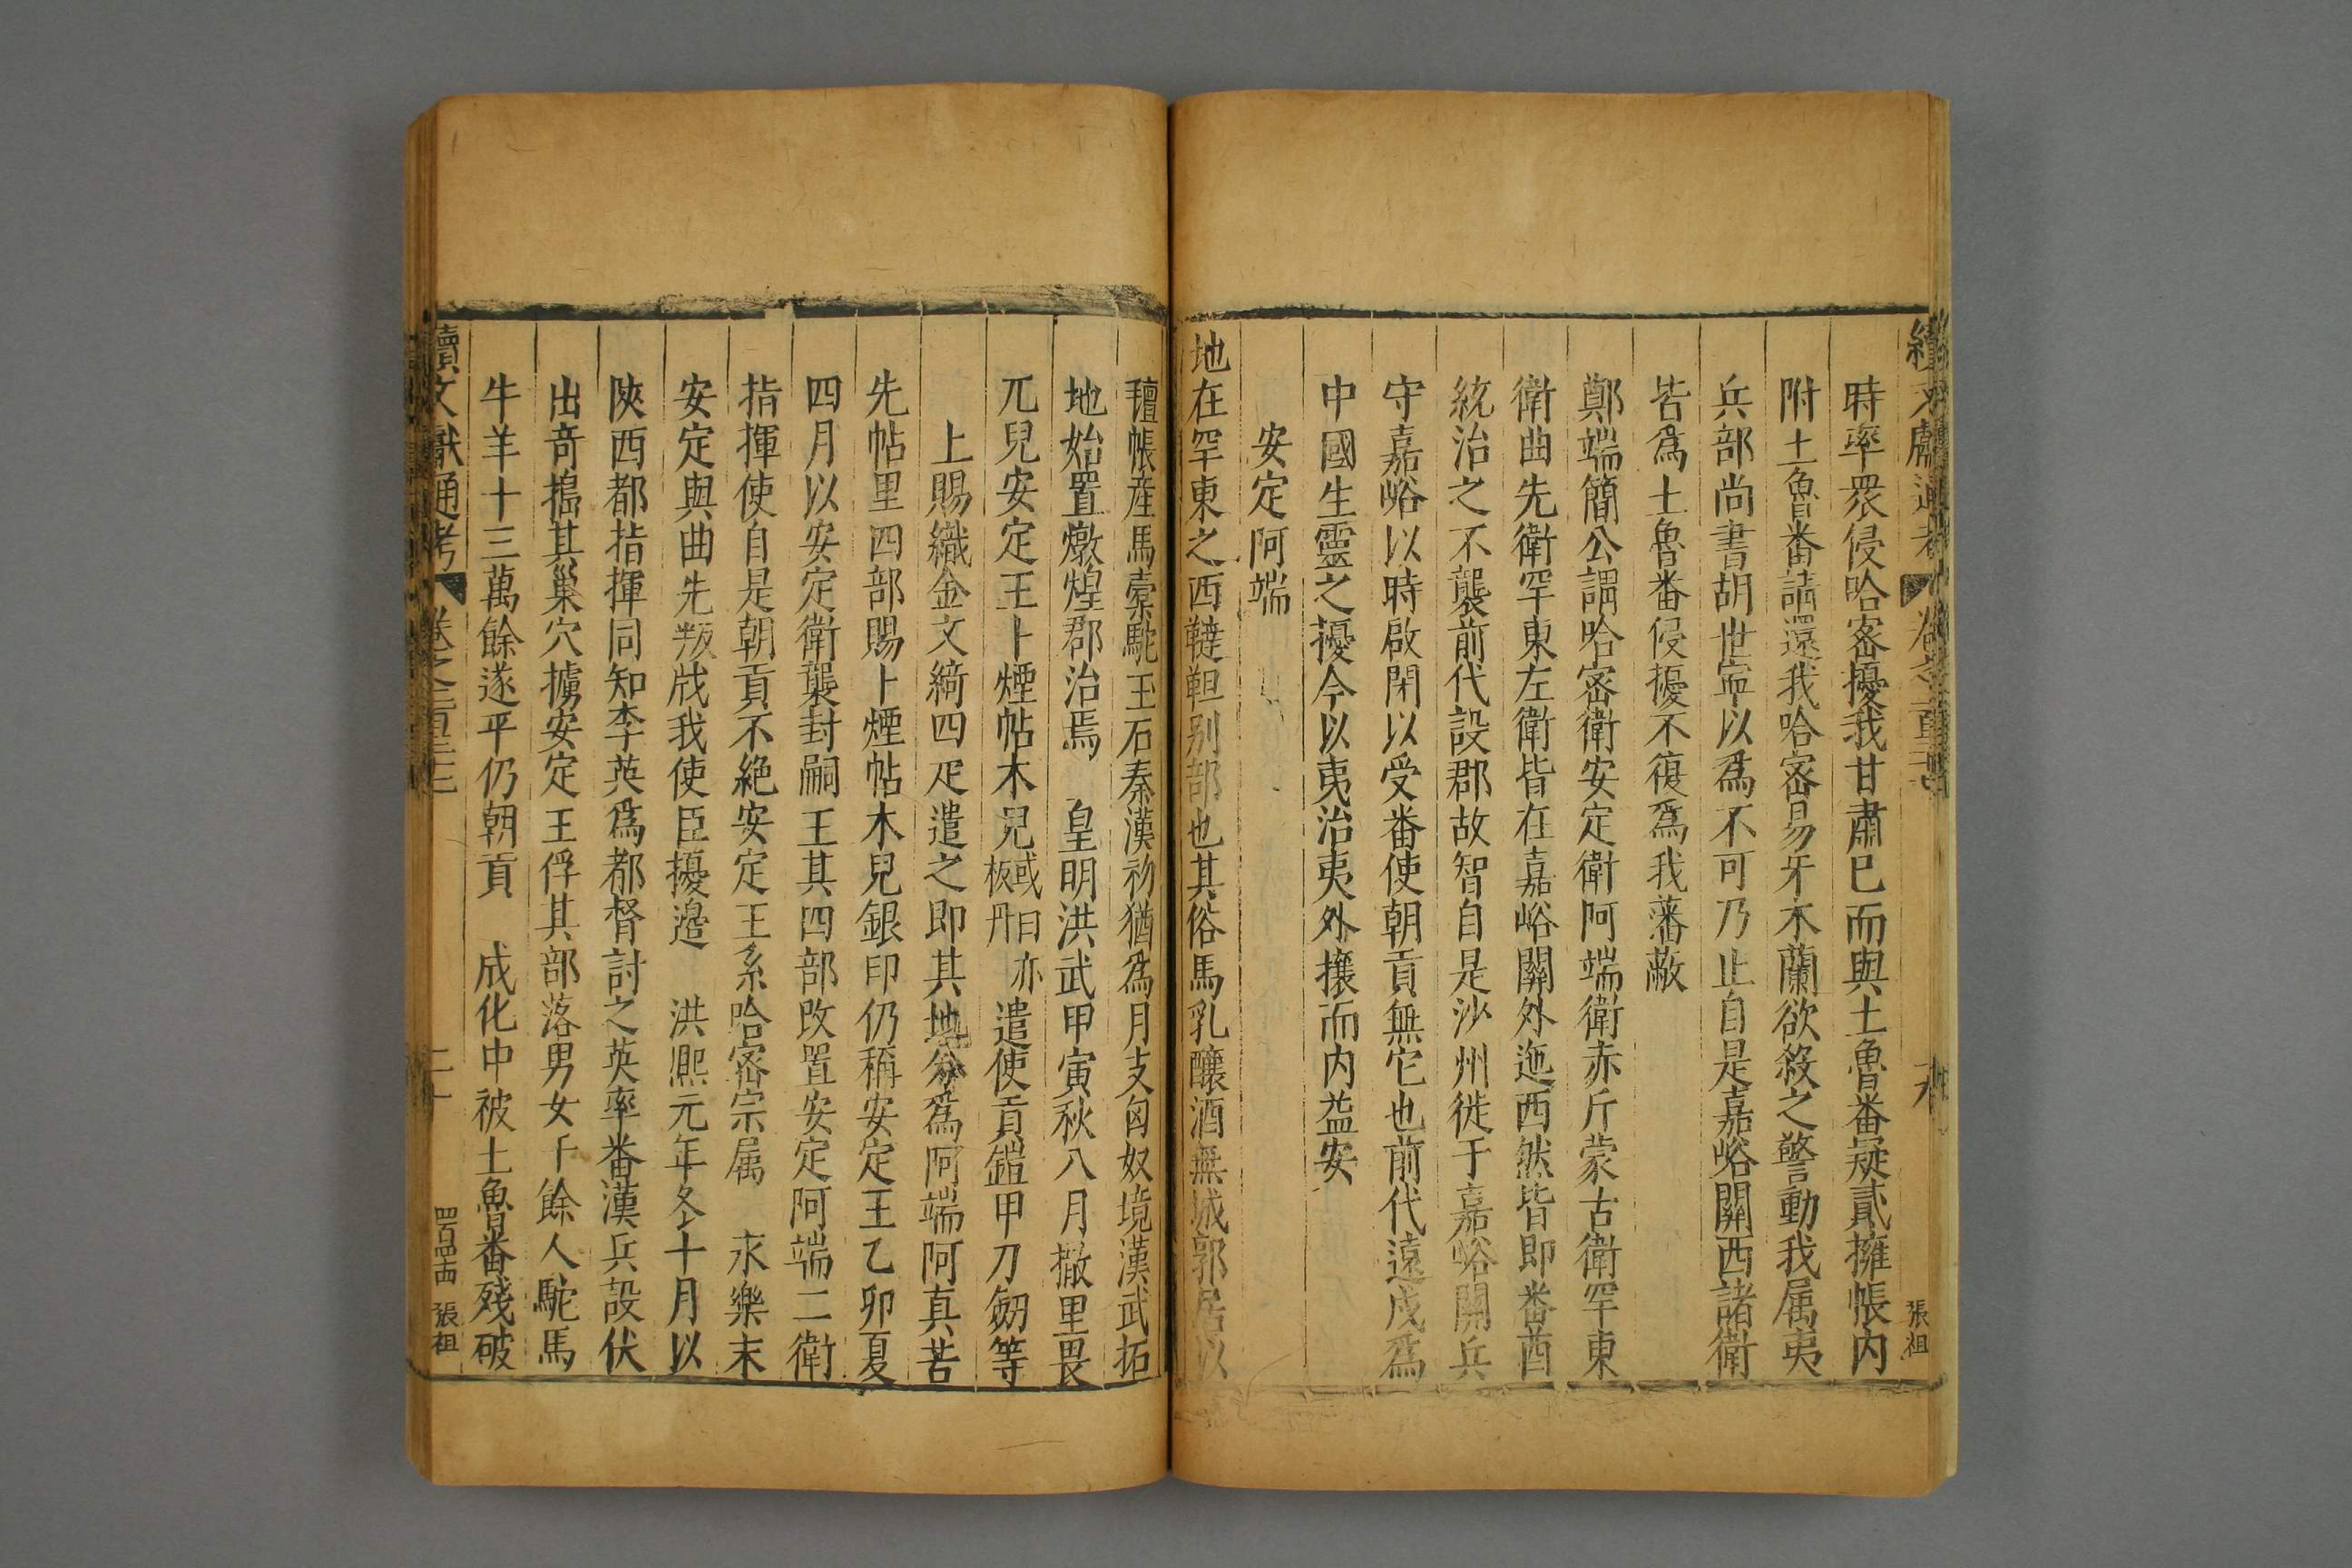 時率眾侵哈密擾我甘肅巳而與土魯番疑貳擁帳内
附土魯番請還我哈密易牙木蘭欲殺之警動我属夷
兵部尚書胡世寧以爲不可乃止自是嘉峪關西諸衛
皆爲土魯番侵擾不復爲我藩蔽
鄭端簡公謂哈密衛安定衛阿端衛赤斤蒙古衛罕東
衛曲先衛罕東左衛皆在嘉峪關外迤西然皆即番酋
統治之不襲前代設郡故智自是沙州徙于嘉峪關兵
守嘉峪以時啟閉以受番使朝貢無它也前代遠戍爲
中國生靈之擾今以夷治夷外攘而内益安
安定阿端
地在罕東之西韃靼别部也其俗馬乳釀酒無城郭居以
氊帳産馬橐駝玉石秦漢初猶爲月支匈奴境漢武拓
地始置燉煌郡治焉　皇明洪武甲寅秋八月撒里畏
兀兒安定王卜煙帖木兒或曰亦板丹遣使貢鎧甲刀劒等
上賜織金文綺四疋遣之即其地分爲阿端阿真苦
先帖里四部賜卜煙帖木兒銀印仍稱安定王乙卯夏
四月以安定衛襲封嗣王其四部改置安定阿端二衛
指揮使自是朝貢不絶安定王系哈密宗属　永樂末
安定與曲先叛戕我使臣擾邉　洪熈元年冬十月以
陜西都指揮同知李英爲都督討之英率番漢兵設伏
出竒搗其巢穴擄安定王俘其部落男女千餘人駝馬
牛羊十三萬餘遂平仍朝貢　成化中被土魯番殘破
續文獻通考　卷之二百三十三　二十　四百四十四　張祖